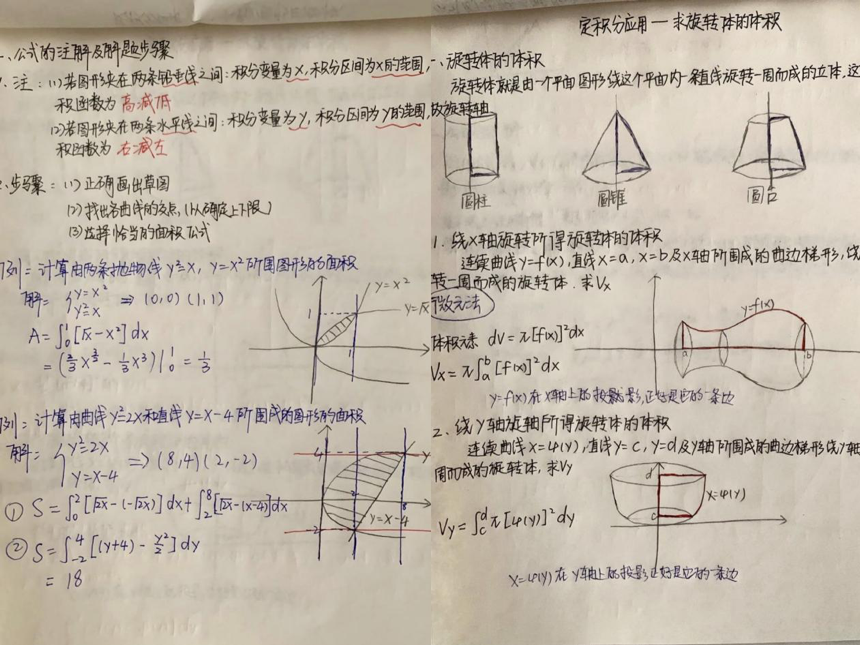 一、公式的注解及解题步骤
1、注：(1)若图形夹在两条铅垂线之间：积分变量为X，积分区间为X的范围，
积函数为 高减低
(2)若图形夹在两条水平线之间：积分变量为Y，积分区间为Y的范围，
积函数为 右减左
2、步骤：(1)正确画出草图
(2)找出各曲线的交点，(以确定上下限)
(3)选择恰当的面积公式
例：计算由两条抛物线 y²=x, y=x² 所围图形的面积
解：{y=x² y²=x ⇒ (0,0) (1,1)
A=∫₀¹[√x-x²]dx
=(⅔x^{3/2}-⅓x³)|₀¹=⅓
y=x²
y=√x
1
1
例：计算由曲线 y²=2x 和直线 y=x-4 所围成的图形的面积
解：{y²=2x y=x-4 ⇒ (8,4) (2,-2)
① S=∫₀²[√2x-(-√2x)]dx+∫₂⁸[√2x-(x-4)]dx
② S=∫₋₂⁴[(y+4)-y²/2]dy
=18
4
y
2
8
-2
y=x-4
定积分应用一求旋转体的体积
一、旋转体的体积
旋转体就是由一个平面图形绕这个平面内一条直线旋转一周而成的立体，这
做旋转轴
圆柱
圆锥
圆台
1. 绕X轴旋转所得旋转体的体积
连续曲线y=f(x), 直线x=a, x=b及x轴所围成的曲边梯形，绕
转一周而成的旋转体．求Vx
微元法
体积元素 dV=π[f(x)]²dx
Vx=π∫ₐᵇ[f(x)]²dx
y=f(x)
a
b
y=f(x)在X轴上的投影，正好是它的一条边
2. 绕Y轴旋轴所得旋转体的体积
连续曲线x=φ(y), 直线y=c, y=d及y轴所围成的曲边梯形绕y轴
周而成的旋转体，求Vy
Vy=∫_c^d π[φ(y)]²dy
d
x=φ(y)
c
x=φ(y)在Y轴上的投影，正好是它的一条边